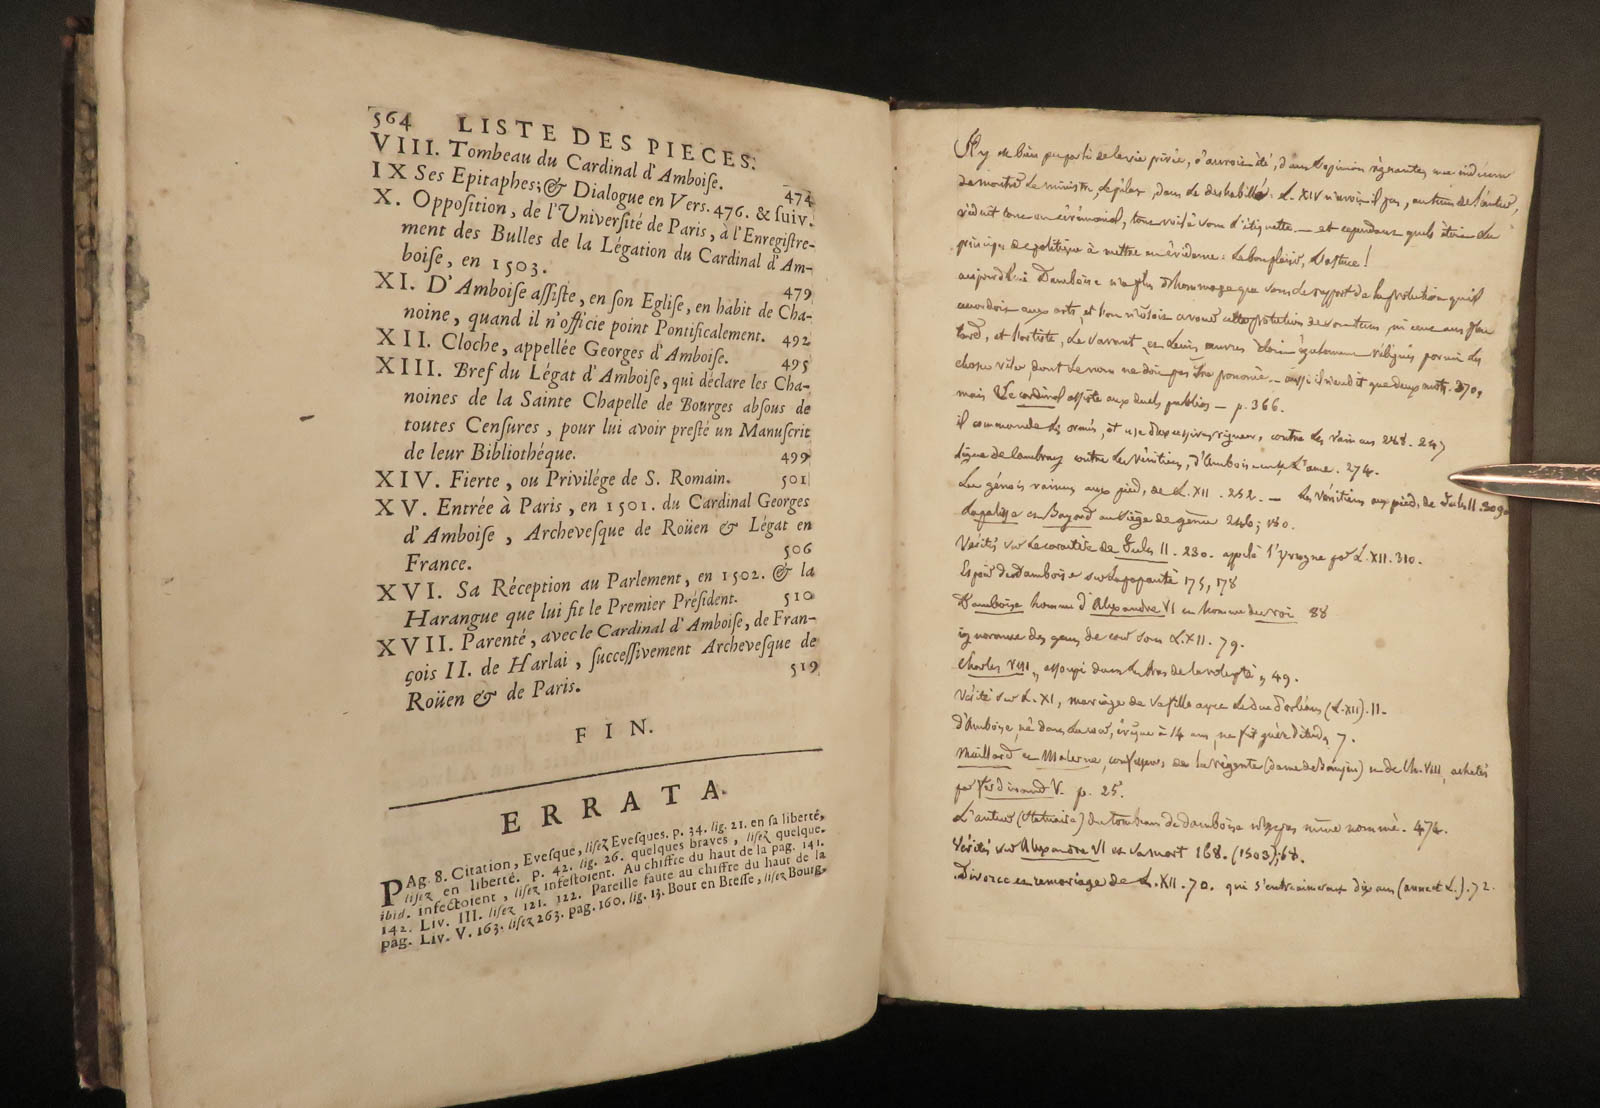 564 LISTE DES PIECES.
VIII. Tombeau du Cardinal d'Amboiſe. 474
IX Ses Epitaphes; & Dialogue en Vers. 476. & ſuiv.
X. Oppoſition, de l'Univerſité de Paris, à l'Enregiſtre-
ment des Bulles de la Légation du Cardinal d'Am-
boiſe, en 1503. 479
XI. D'Amboiſe aſſiſte, en ſon Egliſe, en habit de Cha-
noine, quand il n'officie point Pontificalement. 492
XII. Cloche, appellée Georges d'Amboiſe. 495
XIII. Bref du Légat d'Amboiſe, qui déclare les Cha-
noines de la Sainte Chapelle de Bourges abſous de
toutes Cenſures, pour lui avoir preſté un Manuſcrit
de leur Bibliothéque. 499
XIV. Fierte, ou Privilége de S. Romain. 501
XV. Entrée à Paris, en 1501. du Cardinal Georges
d'Amboiſe, Archeveſque de Roüen & Légat en
France. 506
XVI. Sa Réception au Parlement, en 1502. & la
Harangue que lui fit le Premier Préſident. 510
XVII. Parenté, avec le Cardinal d'Amboiſe, de Fran-
çois II. de Harlai, ſucceſſivement Archeveſque de
Roüen & de Paris. 519
FIN.
ERRATA.
PAg. 8. Citation, Eveſque, liſez Eveſques. p. 34. lig. 21. en ſa liberté,
liſez en liberté. p. 42. lig. 26. quelques braves, liſez quelque.
ibid. infectoient, liſez infeſtoient. Au chiffre du haut de la pag. 141.
142. Liv. III. liſez 121. 122. Pareille faute au chiffre du haut de la
pag. Liv. V. 163. liſez 263. pag. 160. lig. 13. Bout en Breſſe, liſez Bourg.
de la vie privée, dans
le ministre, dans le deshabillé. L. XIV n'avoit-il pas,
en cérémonial, d'étiquette. — et cependant
principes de politique à mettre en évidence: le bon plaisir, l'astuce!
aujourd'hui Damboise n'a plus d'hommage que sous le rapport de la protection qu'il
aux arts, et
et l'artiste, le savant, et leurs œuvres également relégués parmi les
choses viles, dont le nom ne doit pas être prononcé. — 370,
mais le cardinal assiste aux duels publics — p. 366.
il commande les armées, et contre les vaincus 248. 247
Ligue de Cambray contre les Vénitiens, d'Amboise l'ame. 274.
Les génois vaincus aux pieds de L. XII. 252. — les vénitiens aux pieds de Jules II. 309
Lapalisse et Bayard au siège de gênes 246;
Vérités sur le caractère de Jules II. 230. appelé l'yvrogne par L. XII. 310.
Espoir de Damboise sur la papauté 175, 178
Damboise homme d'Alexandre VI et homme du roi 88
ignorance des gens de cour sous L. XII. 79.
Charles VIII, assoupi dans les bras de la volupté, 49.
Vérité sur L. XI, mariage de sa fille avec le duc d'orléans (L. XII). 11.
d'Amboise, évêque à 14 ans, ne fit guère d'études 7.
Maillard et Materne, confesseurs de la régente (dame de Beaujeu) et de Ch. VIII, achetés
par Ferdinand V. p. 25.
L'auteur (statuaire) du tombeau de damboise n'y est pas même nommé. 474.
Vérités sur Alexandre VI et sa mort 168. (1503); 68.
Divorce et remariage de L. XII. 70. qui s'entr'aimèrent dix ans (anne et L.). 72.